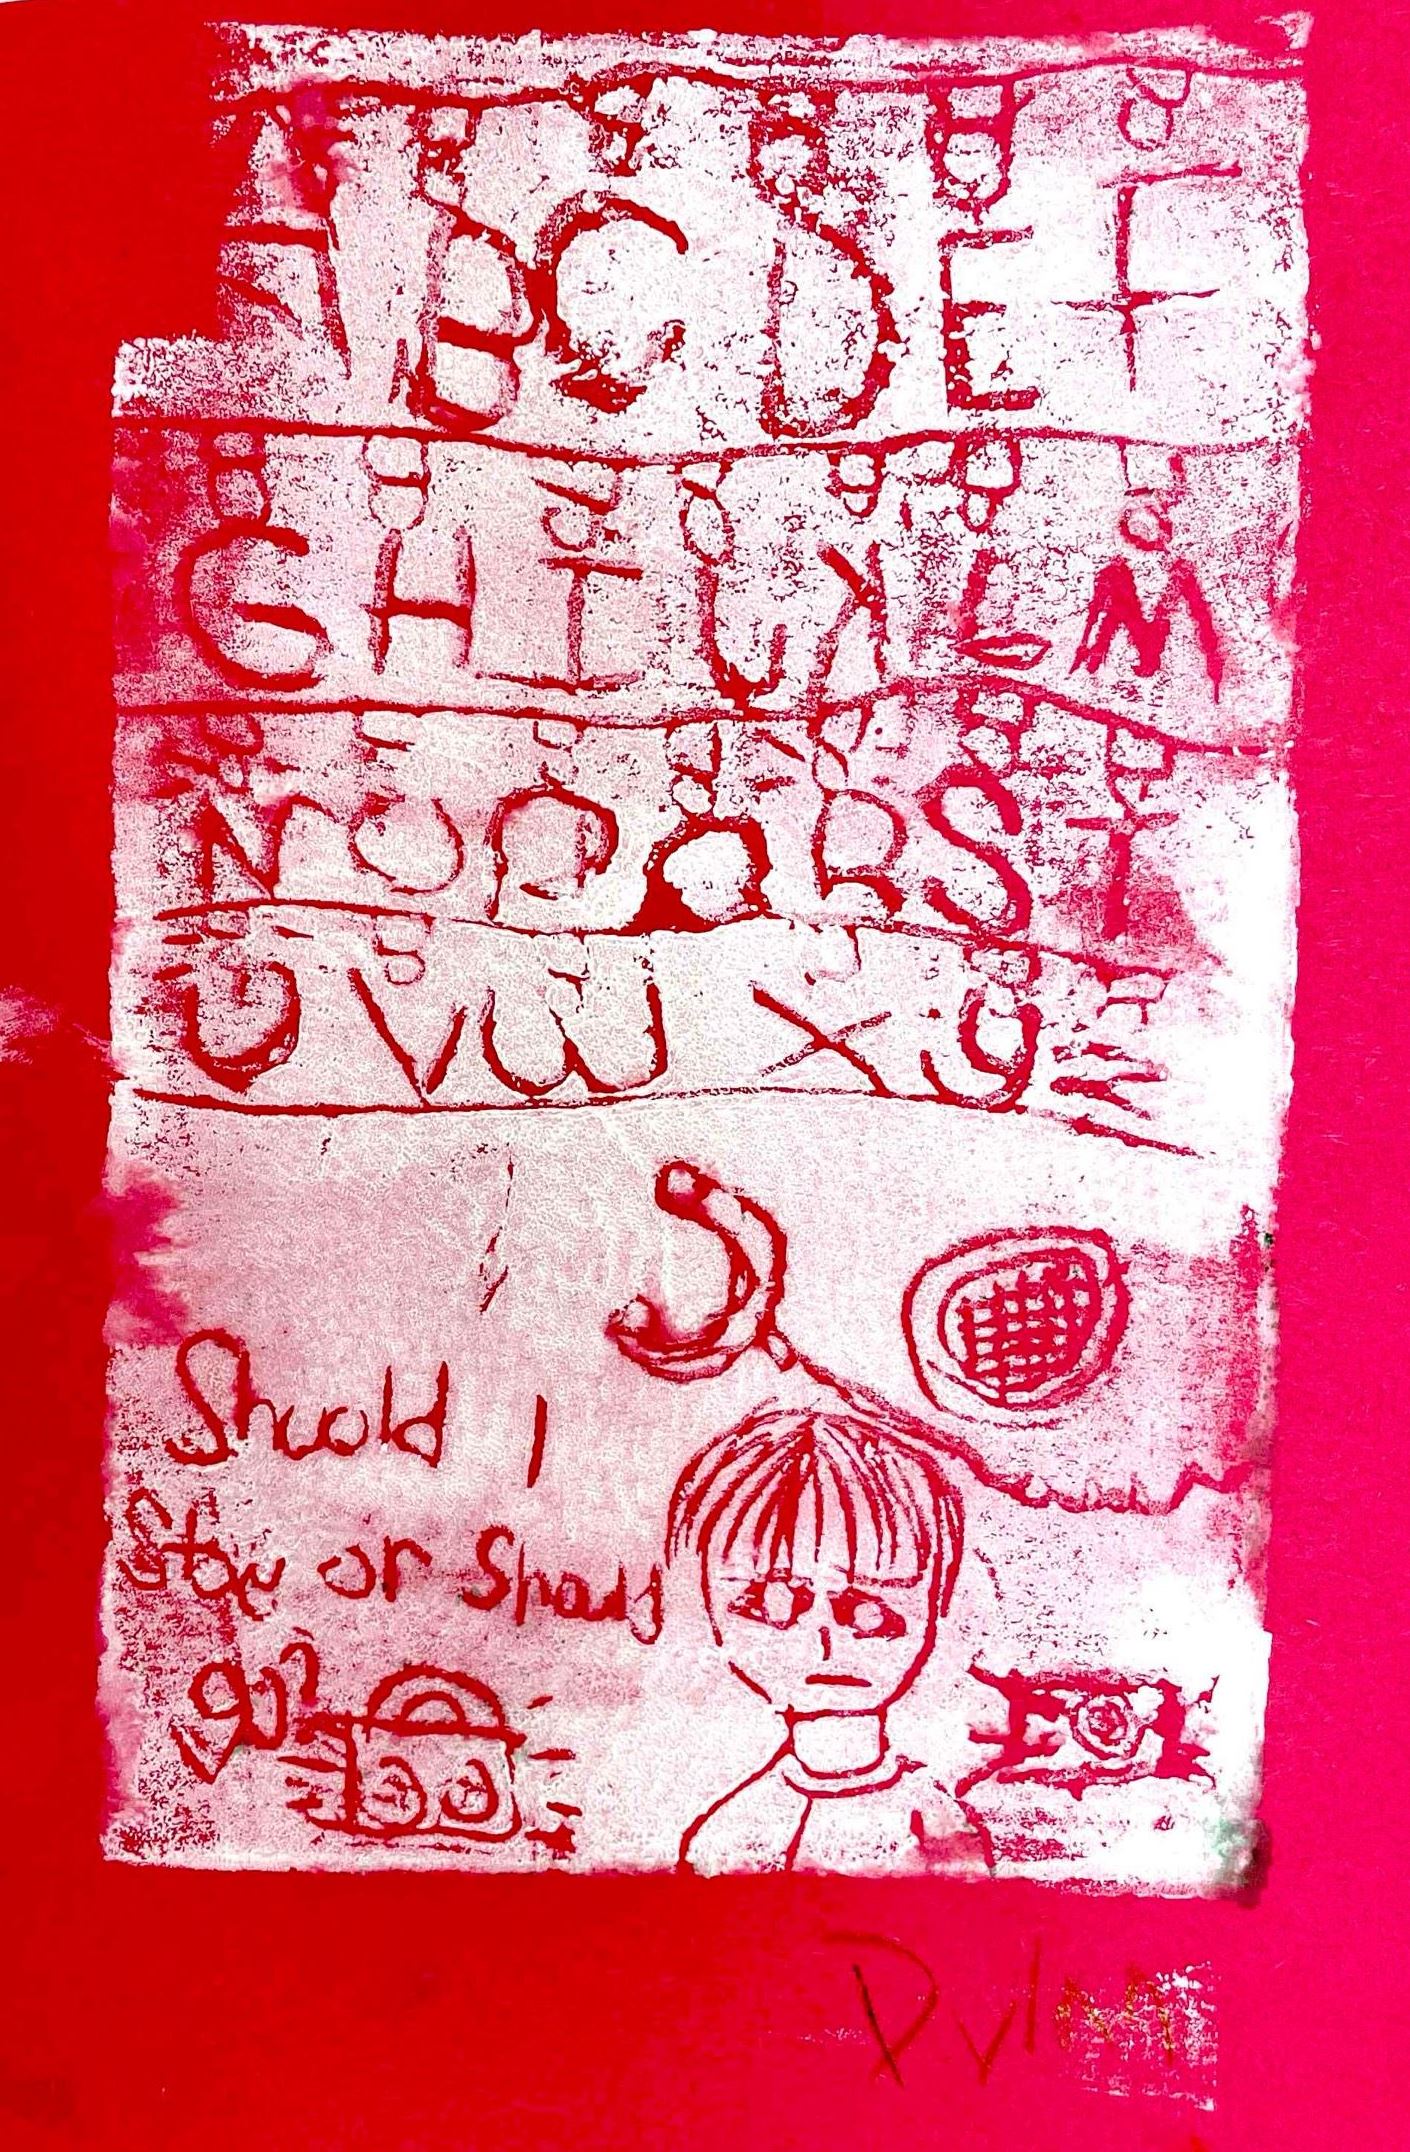 A B C D E F
G H I J K L M
N O P Q R S T
U V W X Y Z
Should I
Stay or
go?
Dylan